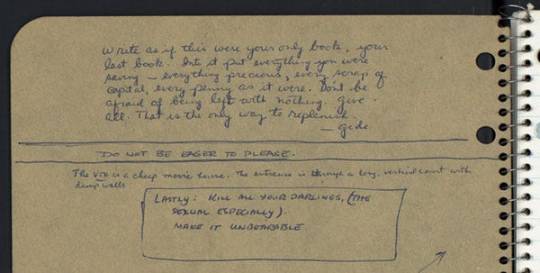 Write as if this were your only book, your
last book. Into it put everything you were
saving — everything precious, every scrap of
capital, every penny as it were. Don't be
afraid of being left with nothing. Give
all. That is the only way to replenish
— Gide
DO NOT BE EAGER TO PLEASE.
The is a cheap movie house. The entrance is through a long, vertical court with
damp walls
LASTLY: KILL ALL YOUR DARLINGS, (THE
SEXUAL ESPECIALLY)
MAKE IT UNBEARABLE